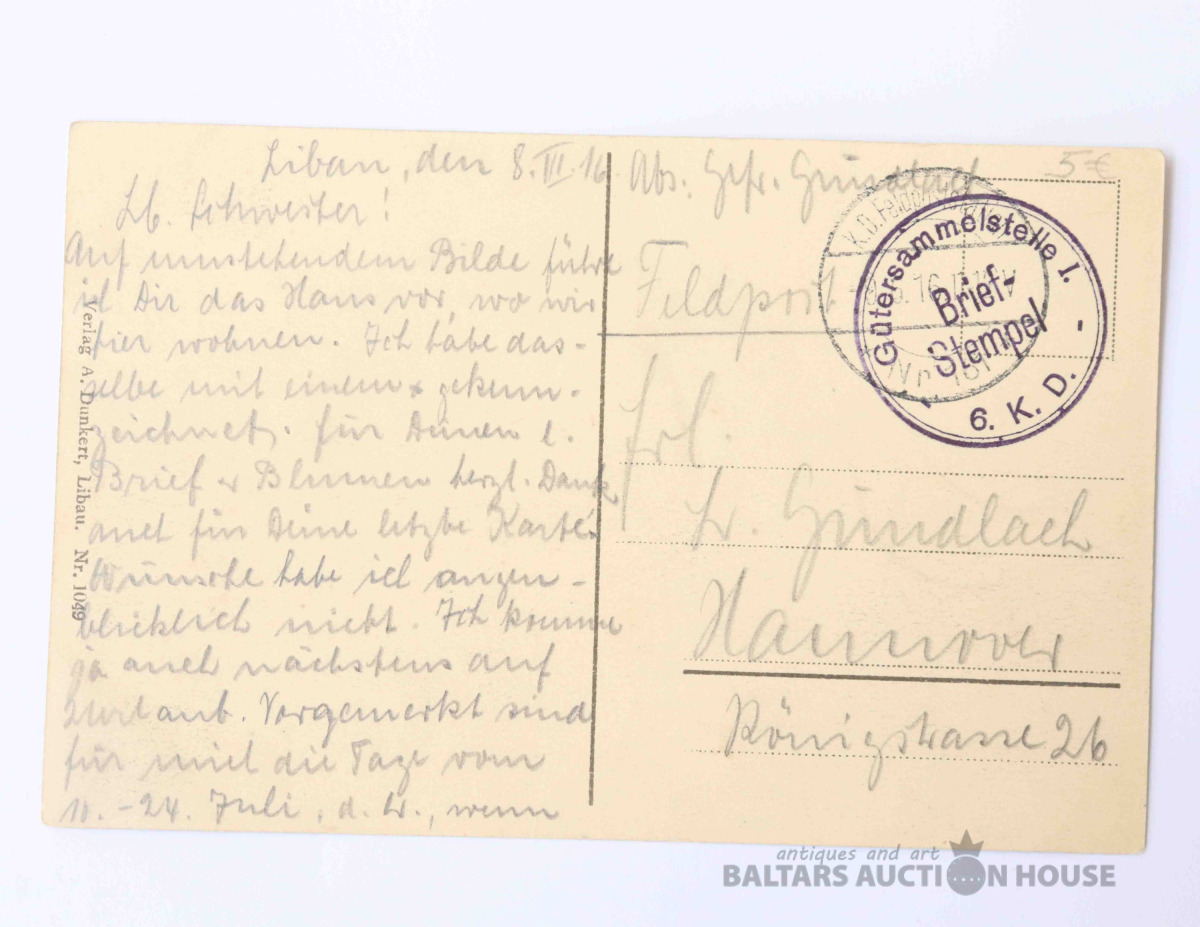 Libau, den 8. III. 16.
Lb. Schwester!
Auf umstehendem Bilde führe
ich Dir das Haus vor, wo wir
hier wohnen. Ich habe das-
selbe mit einem x gekenn-
zeichnet. Für Deinen l.
Brief u Blumen herzl. Dank
auch für Deine letzte Karte.
Wünsche habe ich augen-
blicklich nicht. Ich komme
ja auch nächstens auf
Urlaub. Vorgemerkt sind
für mich die Tage vom
10. - 24. Juli, d. h., wenn
Verlag A. Dunkert, Libau. Nr. 1049
Abs: Gefr. Gundlach
5 €
Feldpost
K.D. Feldpost
Gütersammelstelle I.
Brief-
Stempel
6. K. D.
Frl.
Gundlach
Hannover
Königstrasse 26
antiques and art
BALTARS AUCTION HOUSE